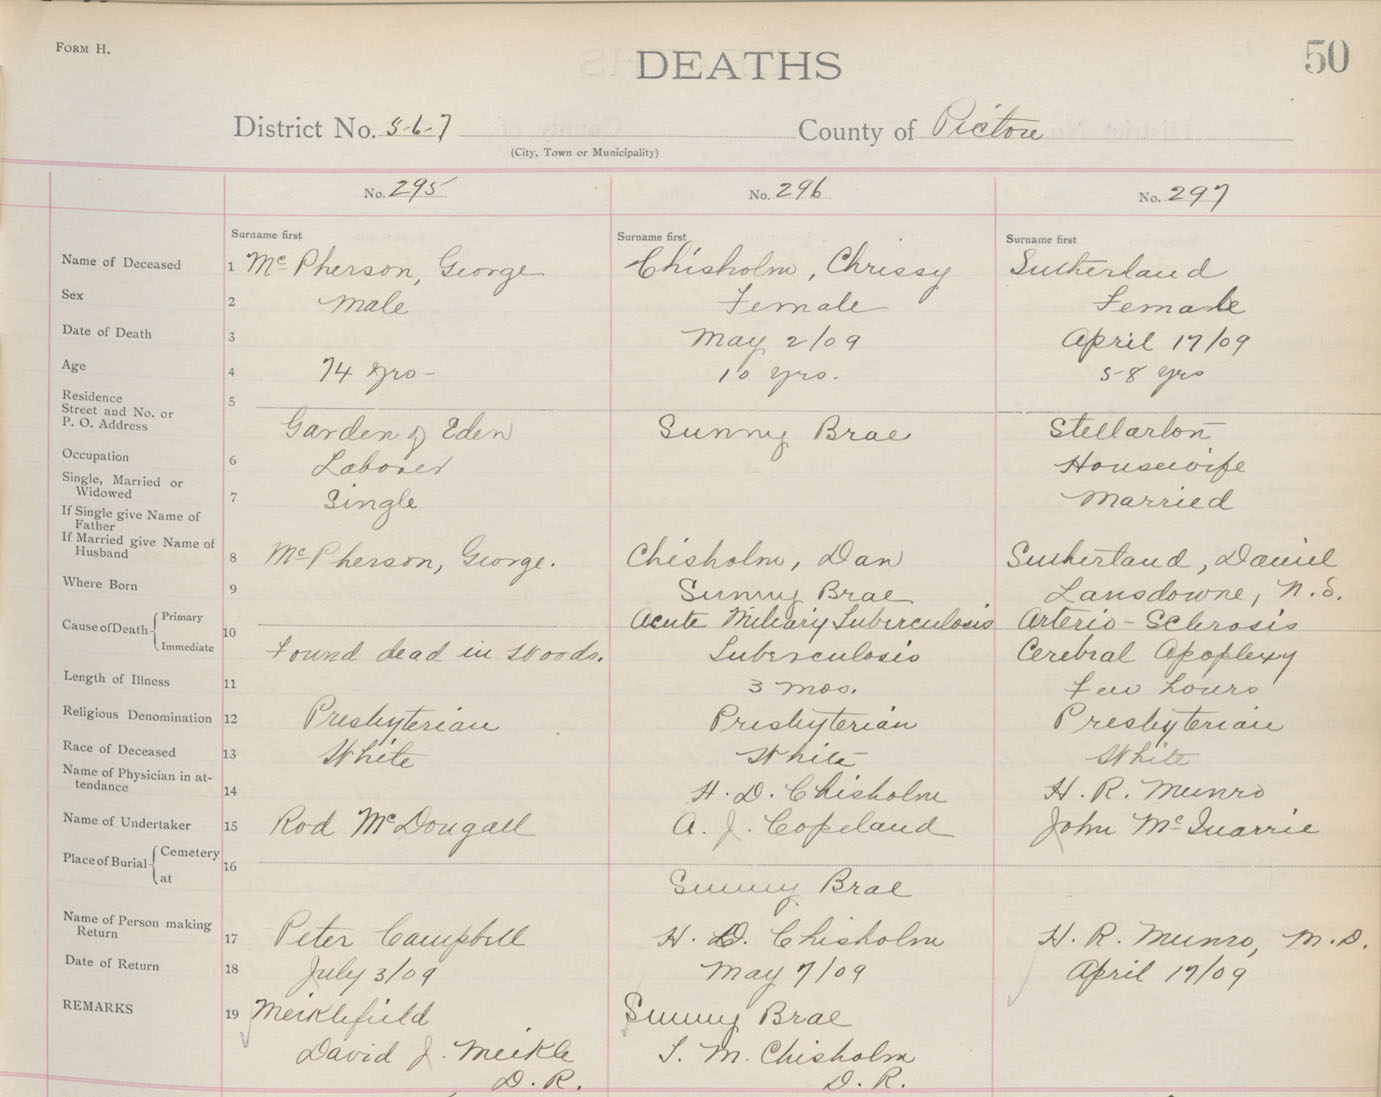 FORM H.
DEATHS
50
District No. 5-6-7
County of Pictou
(City, Town or Municipality)
No. 295
No. 296
No. 297
Surname first
Surname first
Surname first
Name of Deceased 1 McPherson, George Chisholm, Chrissy Sutherland
Sex 2 Male Female Female
Date of Death 3 May 2/09 April 17/09
Age 4 74 yrs- 10 yrs. 58 yrs
Residence 5
Street and No. or
P. O. Address Garden of Eden Sunny Brae Stellarton
Occupation 6 Laborer Housewife
Single, Married or
Widowed 7 Single Married
If Single give Name of
Father
If Married give Name of
Husband 8 McPherson, George. Chisholm, Dan Sutherland, Daniel
Where Born 9 Sunny Brae Lansdowne, N.S.
Cause of Death Primary 10 Acute Miliary Tuberculosis Arterio-Sclerosis
Immediate Found dead in Woods. Tuberculosis Cerebral Apoplexy
Length of Illness 11 3 mos. Few hours
Religious Denomination 12 Presbyterian Presbyterian Presbyterian
Race of Deceased 13 White White White
Name of Physician in at-
tendance 14 H. D. Chisholm H. R. Munro
Name of Undertaker 15 Rod McDougall A. J. Copeland John McQuarrie
Place of Burial Cemetery 16
at Sunny Brae
Name of Person making
Return 17 Peter Campbell H. D. Chisholm H. R. Munro, M.D.
Date of Return 18 July 3/09 May 7/09 April 17/09
REMARKS 19 Meiklefield Sunny Brae
David J. Meikle S. M. Chisholm
D. R. D. R.